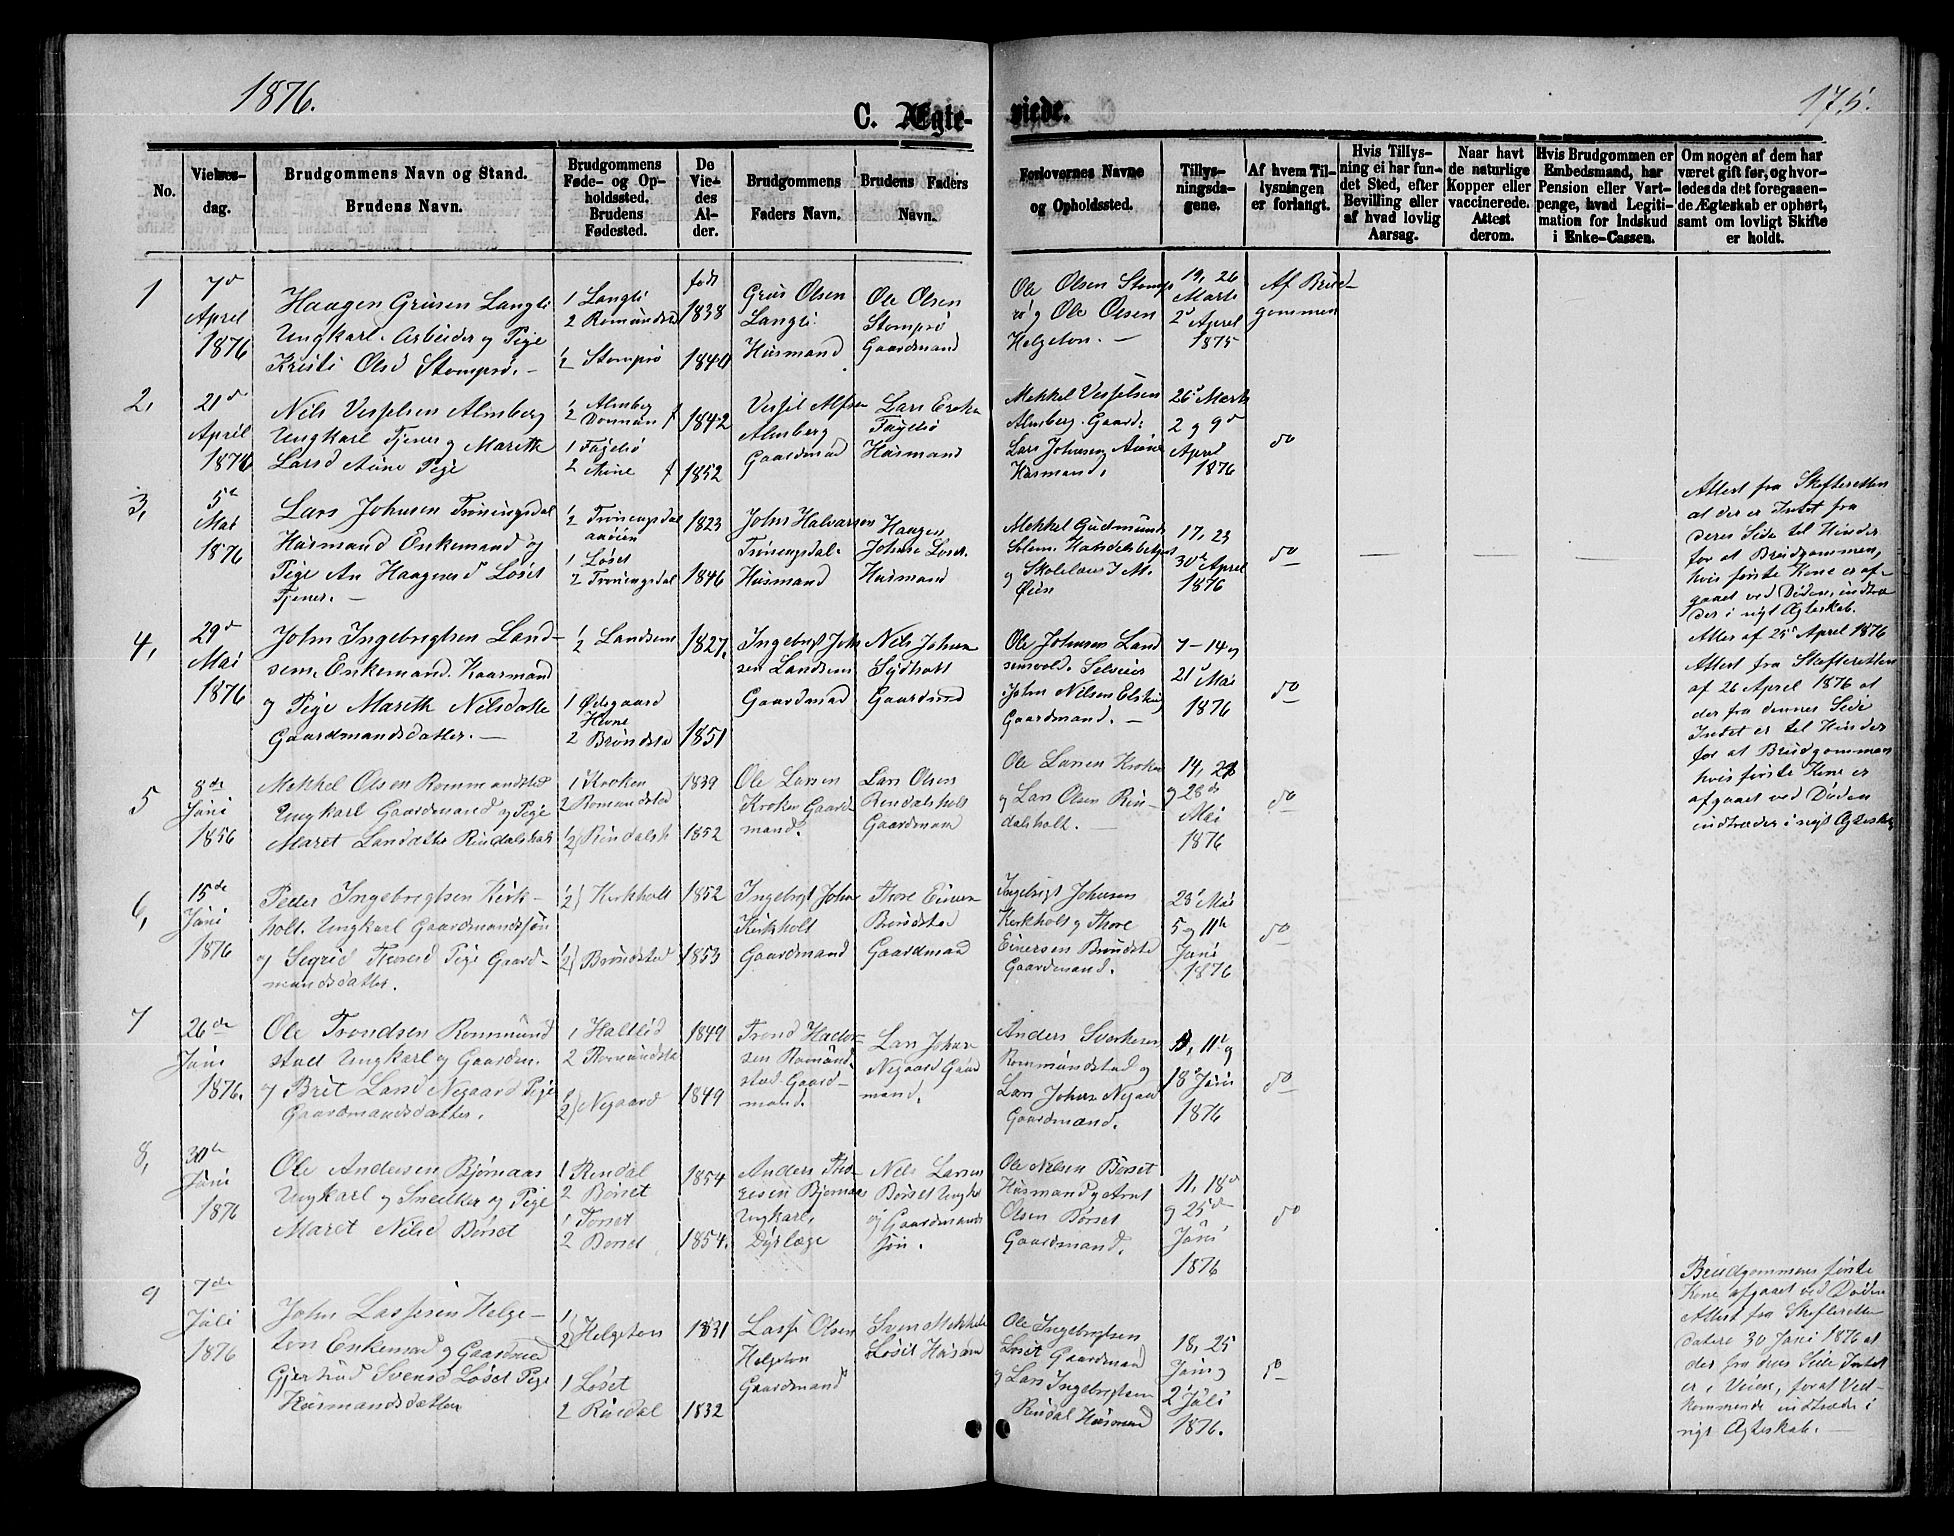 1876.
175.
C. Ægte-
viede.
No.
Vielses-
dag.
Brudgommens Navn og Stand.
Brudens Navn.
Brudgommens
Føde- og Op-
holdssted.
Brudens
Fødested.
De
Vie-
des
Al-
der.
Brudgommens
Faders Navn.
Brudens Faders
Navn.
Forlovernes Navne
og Opholdssted.
Tillys-
ningsda-
gene.
Af hvem Til-
lysningen
er forlangt.
Hvis Tillys-
ning ei har fun-
det Sted, efter
Bevilling eller
af hvad lovlig
Aarsag.
Naar havt
de naturlige
Kopper eller
vaccinerede.
Attest
derom.
Hvis Brudgommen er
Embedsmand, har
Pension eller Vart-
penge, hvad Legiti-
mation for Indskud
i Enke-Cassen.
Om nogen af dem har
været gift før, og hvor-
ledes da det foregaaen-
de Ægteskab er ophørt,
samt om lovligt Skifte
er holdt.
1
7d
April
1876
Haagen Grusen Langli
Ungkarl. Arbeider og Pige
Kristi Olsd Stomprø. —
1 Langli
2 Romundsta
1/2 Stomprø
født
1838
1840
Grus Olsen
Langli
Husmand
Ole Olsen
Stomprø
Gaardmand
Ole Olsen Stomp
rø og Ole Olsen
Helgeton. —
19, 26
Marts
2d April
1875
Af Brud-
gommen
2,
21d
April
1876
Nils Vespelsen Almberg
Ungkarl Tjener og Marith
Larsd Aune Pige
1/2 Almberg
1 Fagelsø
2 Aune
1842
1852
Almberg
Gaardmand
Husmand
Mekkel Vesselsen
Almberg. Gaard:
Lars Johnsen Aune
Husmand.
26d Marts
2 og 9d
April
1876
do
3,
5te
Mai
1876
Lars Johnsen Trøningsdal
Husmand Enkemand og
Pige An Haagensd Løset
Tjener. —
1/2 Trøningsdal
1 Løset
2 Trøningsdal
1823
1846
John Halvarsen
Trøningsdal-
Husmand
Haagen
Johnse Løset
Husmand
Mekkel Gudmunds
Solem
og Skolelærer J M.
Øien
17, 23
30te April
1876
do
Attest fra Skifteretten
at der er Intet fra
deres Side til Hinder
for at Brudgommen,
hvis første Kone er af-
gaaet ved Døden, indtræ
der i nyt Ægteskab.
Attes af 25d April 1876
4,
29d
Mai
1876
John Ingebrigtsen Land-
sem, Enkemand. Kaarmand
og Pige Marith Nilsdatte
Gaardmandsdatter. —
1/2 Landsem
1 Ødegaard
2 Brøndsta
1827.
1851
Ingebrigt John
sen Landsem
Gaardmand
Nils Johnsen
Sydhalt
Gaardmand
Ole Johnsen Land
semsvold. Selveier
John Nilsen
Gaardmand. —
7-14 og
21d Mai
1876
do
Attest fra Skifteretten
af 26 April 1876 at
der fra dennes Side
Intet er til Hinder
for at Brudgommen
hvis første Kone er
afgaaet ved Døden
indtræder i nyt Ægteskab
5
8de
Juni
1856
Mekkel Olsen Rommundstad
Ungkarl Gaardmand og Pige
Maret Larsdatter Rindalshalt
1 Kroken
2 Romundstad
1/2 Rindalsh
1839
1852
Ole Larsen
Kroken Gaard
mand.
Lars Olsen
Rindalsholt
Gaardmand
Ole Larsen Kroken
og Lars Olsen Rin-
dalsholt. —
14, 21
og 28de
Mai
1876
do
6,
15de
Juni
1876
Peder Ingebrigtsen Kirk-
holt. Ungkarl Gaardmandssøn
og Segrid Thoresd Pige Gaard-
mandsdatter.
1/2 Kirkholt
1/2 Brøndstad
1852
1853
Ingebrigt Johns
Kirkholt
Gaardmand
Thore Einersen
Brøndstad
Gaardmand
Ingebrigt Johnsen
Kirkholt og Thore
Einersen Brøndsta
Gaardmand.
28d Mai
5 og 11te
Juni
1876
do
7
26de
Juni
1876.
Ole Trondsen Rommund
stad Ungkarl og Gaardm.
og Brit Larsd Negaard Pige
Gaardmandsdatter.
1 Haltlid
2 Romundsta
1/2 Negaard
1849
1849
Trond Haldor-
sen Romund
stad Gaard-
mand.
Lars Johnsen
Negaard Gaard
mand.
Anders Sverkesen
Rommundstad og
Lars Johnse Negaard
Gaardmand.
11te og
18de Juni
1876
do
8,
30te
Juni
1876
Ole Andersen Bjørnaas
Ungkarl og Snedker og Pige
Maret Nilsd Børset
1 Rindal
2 Børset
1 Torset
2 Børset
1854
1854.
Anders Tho-
resen Bjørnaas
Ungkarl,
Dyrlæge
Nils Larsen
Børset Ungka
og Gaardmands
søn.
Ole Nilsen Børset
Husmand og Arnt
Olsen Børset
Gaardmand.
11, 18d
og 25de
Juni
1876
do
9
7de
Juli
1876
John Lassesen Helge-
ton Enkemand og Gaardmand
Gjertrud Svensd Løset Pige
Husmandsdatter
1/2 Helgeton
1 Løset
2 Rindal
1831
1832
Lasse Olsen
Helgeton
Gaardmand
Sven Mekkels
Løset Husmand
Ole Ingebrigtsen
Løset Gaardmand
og Lars Ingebrigtsen
Rindal Husmand
18, 25
Juni og
2d Juli
1876.
do
Brudgommens første
Kone afgaaet ved Døden
Attest fra Skifteretten
datere 30 Juni 1876 at
der fra dens Side Intet
er i Veien, for at Ved-
kommende indtræde i
nyt Ægteskab. —